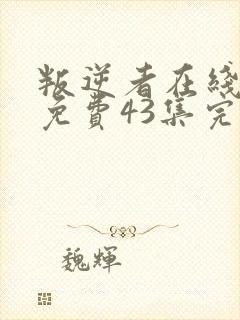 叛逆者在綫
免費43集完
魏輝